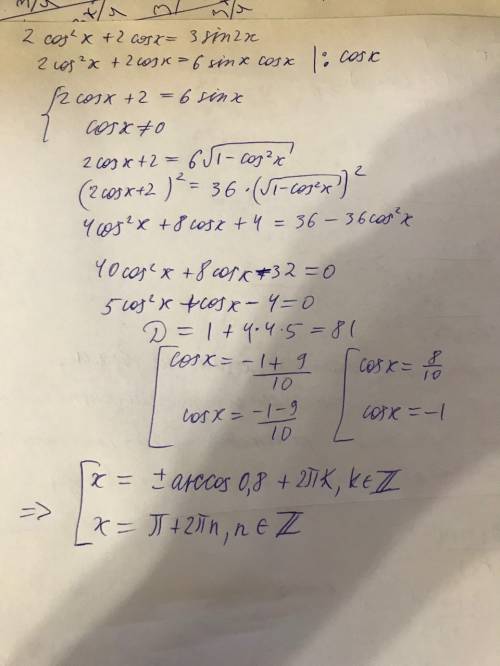 2 cos²x + 2 cosx = 3 sin2x
2 cos²x + 2 cosx = 6 sinx cosx | : cosx
{ 2 cosx + 2 = 6 sinx
cosx ≠ 0
2 cosx + 2 = 6√(1 - cos²x)
(2 cosx + 2)² = 36 · (√(1 - cos²x))²
4 cos²x + 8 cosx + 4 = 36 - 36 cos²x
40 cos²x + 8 cosx - 32 = 0
5 cos²x + cosx - 4 = 0
D = 1 + 4·4·5 = 81
[ cosx = (-1 + 9)/10 [ cosx = 8/10
cosx = (-1 - 9)/10 cosx = -1
=> [ x = ± arccos 0,8 + 2πk, k ∈ ℤ
x = π + 2πn, n ∈ ℤ